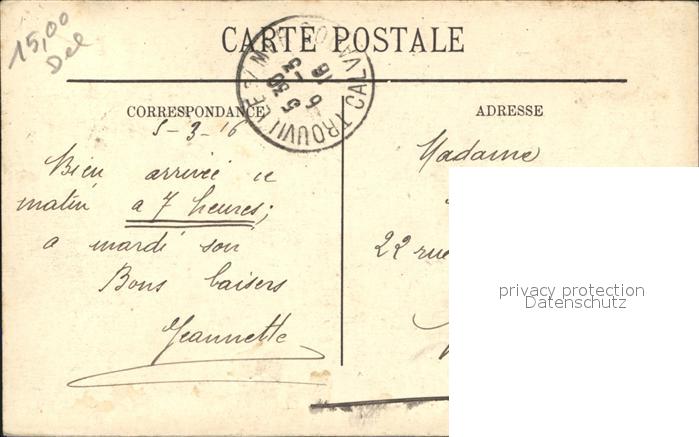 15,00
Del
CARTE POSTALE
CORRESPONDANCE
ADRESSE
TROUVILLE S/ MER CALVADOS
5 30
5 - 3
16
5-3-16
Bien arrivée ce
matin a 7 heures;
a mardi soir
Bons baisers
Jeannette
Madame
22 rue
privacy protection
Datenschutz